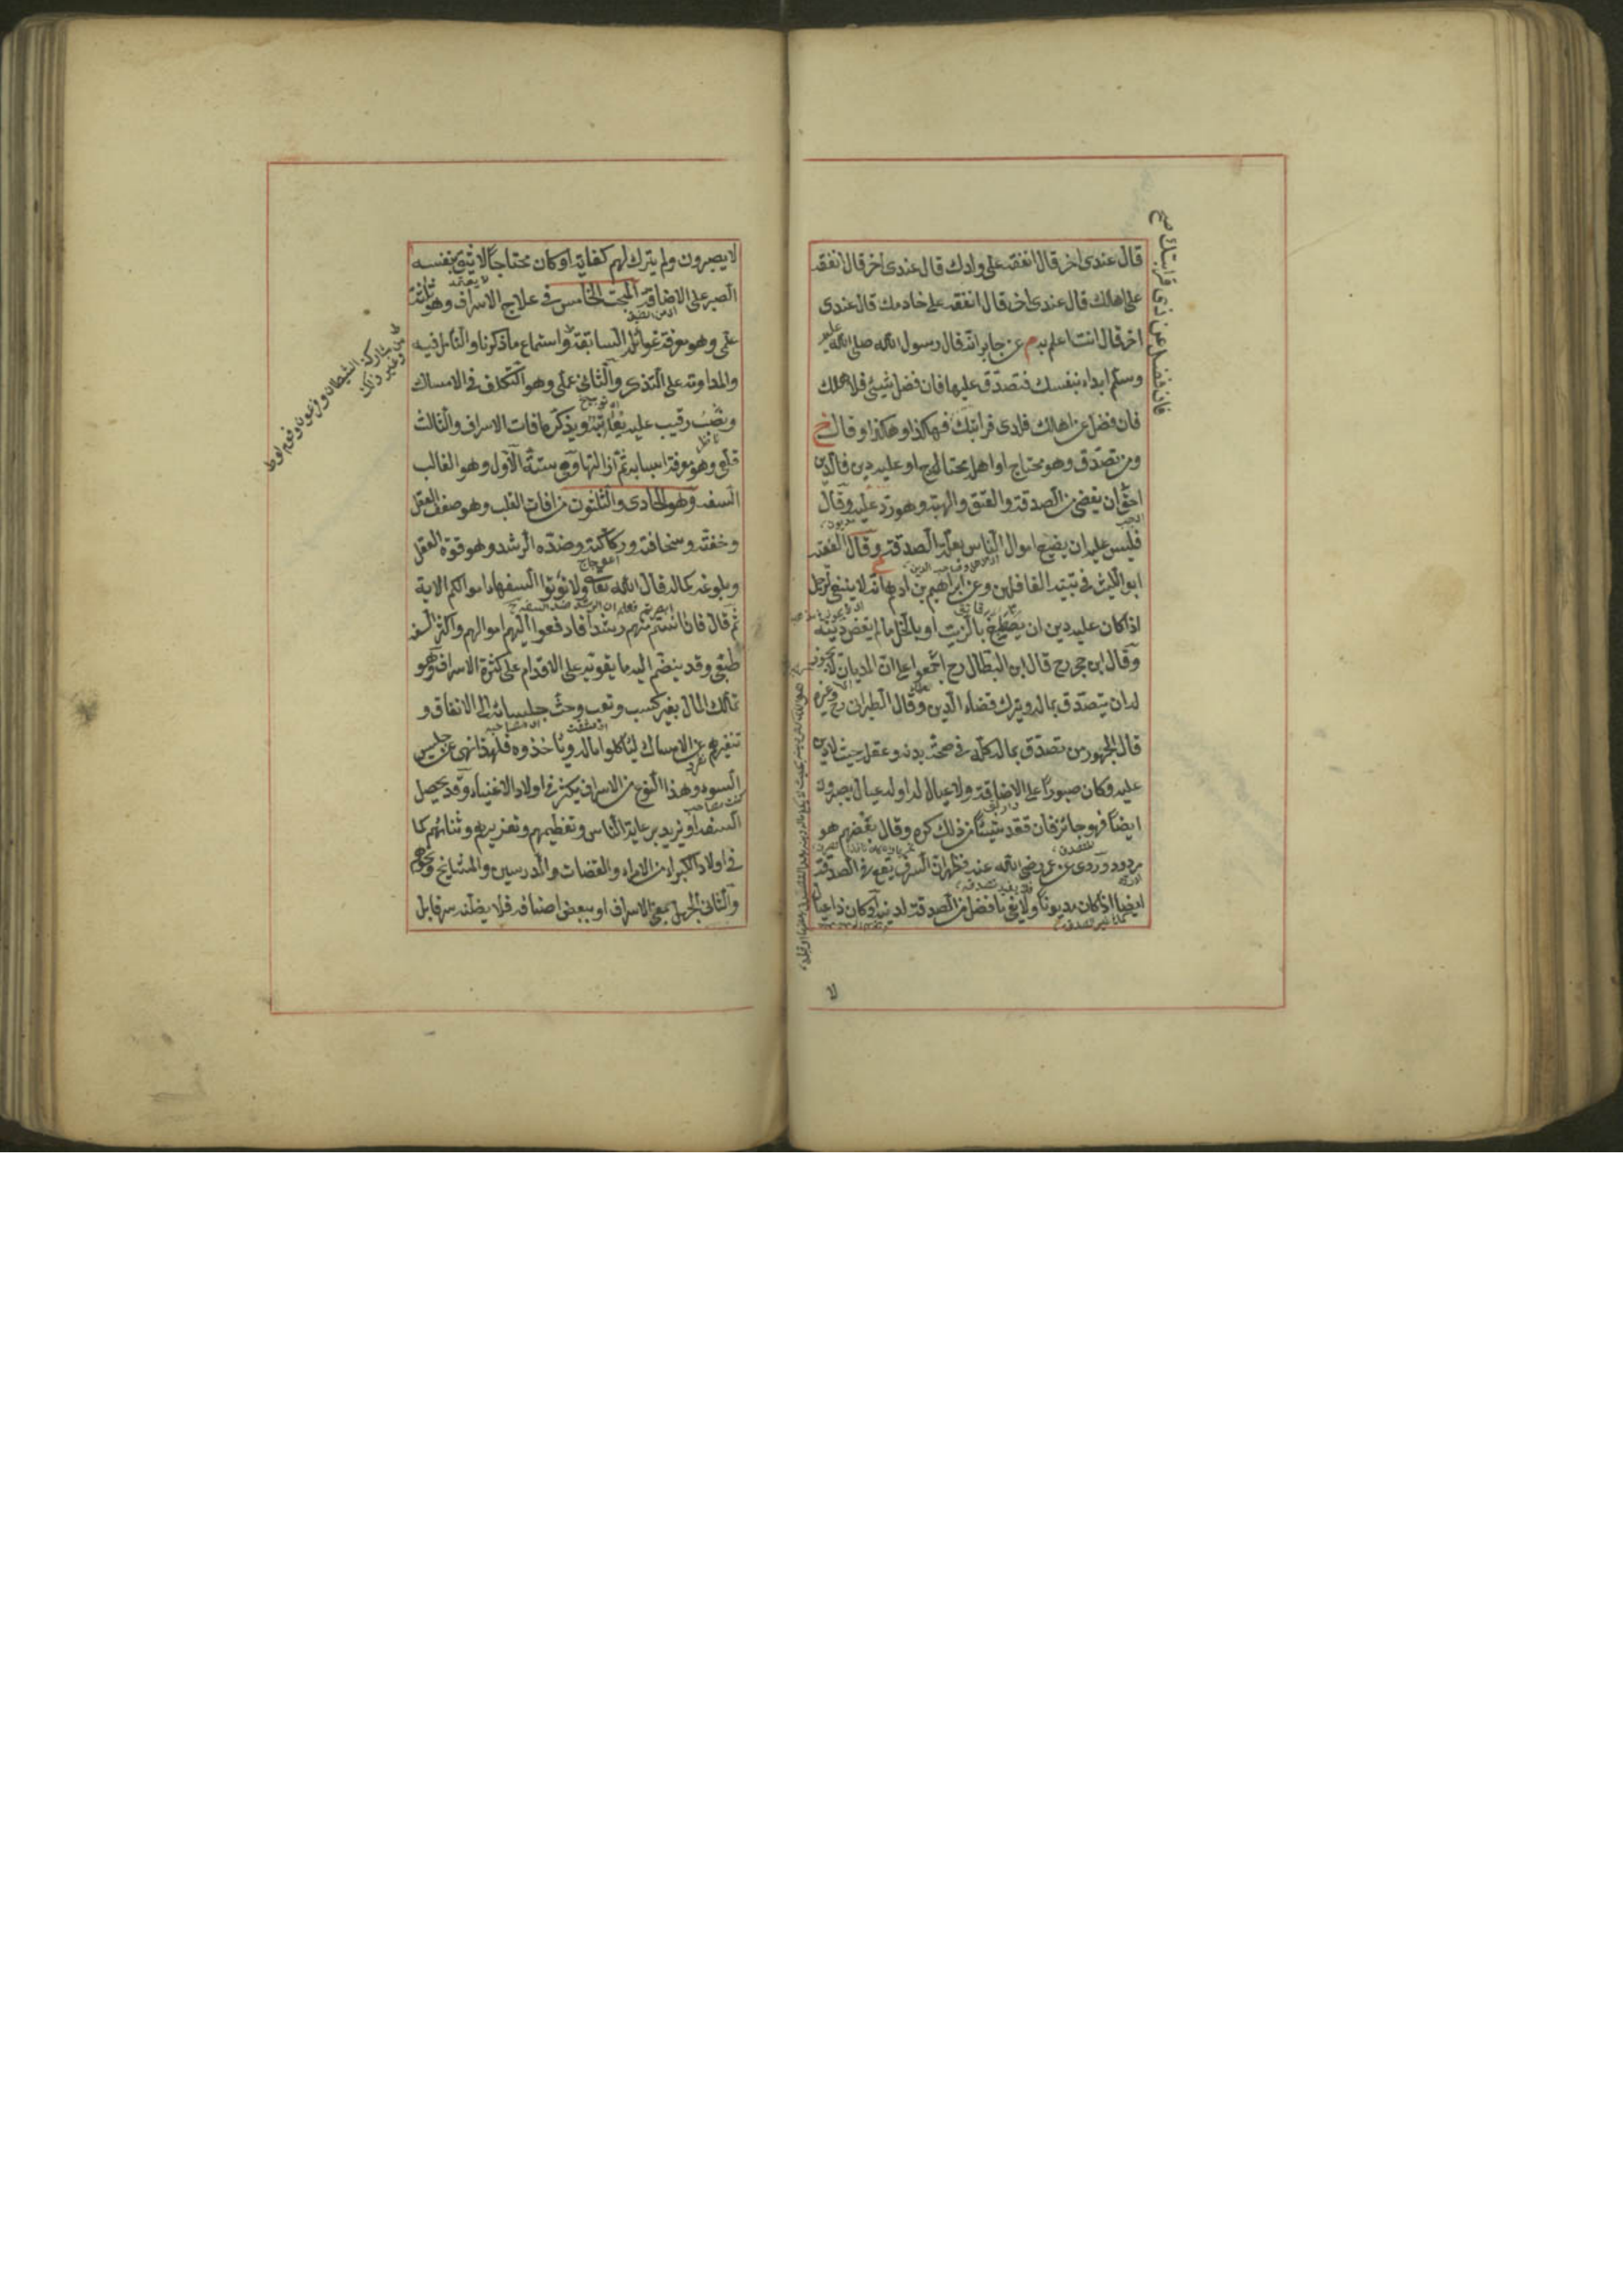 قال عندى اخر قال انفقه على ولدك قال عندى اخر قال انفقه
على اهلك قال عندى اخر قال انفقه على خادمك قال عندى
اخر قال انت اعلم به م عن جابر انه قال رسول الله صلى الله عليه
وسلم ابداء بنفسك فتصدّق عليها فان فضل شيئ فلاهلك
فان فضل عن اهلك فلذى قرابتك فهكذا وهكذا وقال خ
ومن تصدّق وهو محتاج او اهله محتاج او عليه دين فالدّين
احقّ ان يقضى من الصدقة والعتق والهبة وهو ردّ عليه وقال
فليس عليه ان يضيع اموال الناس بعلّة الصدقة وقال الفقيه
ابو الليث فى تنبيه الغافلين وعن ابراهيم بن ادهم انه لا ينبغى لرجل
اذا كان عليه دين ان يصطبغ بالزيت او بالخل ما لم يقض دينه
وقال ابن حجر رح قال ابن البطال رح اجمعوا على ان المديان لا
له ان يتصدّق بماله ويترك قضاء الدين وقال الطبرانى رح وغيره
قال الجمهور من تصدّق بماله كلّه فى صحّة بدنه وعقله حيث لا دين
عليه وكان صبورًا على الاضاقة ولا عيال له او له عيال يصبرون
ايضًا فهو جائز فان فقد شيئًا من ذلك كره وقال بعضهم هو
مردود وروى عن عمر رضى الله عنه فظهر ان السرف يقع فى الصدقة
ايضا اذا كان مديونًا ولا يفى ما فضل من الصدقة لدينه او كان ذا عيال
فان فضل عن ذى قرابتك صح
لا
لا يصبرون ولم يترك لهم كفاية او كان محتاجًا لا يثق بنفسه
الصبر على الاضاقة المبحث الخامس فى علاج الاسراف وهو ثلثة
علمى وهو معرفة غوائله السابقة واستماع ما ذكرنا والتأمل فيه
والمداومة على التذكر والثانى عملى وهو التكلف فى الامساك
ونصب رقيب عليه يعاتبه ويذكره افات الاسراف والثالث
قلعى وهو معرفة اسبابه ثم ازالتها وهى ستة الاول وهو الغالب
السفه وهو الحادى والثلثون من افات القلب وهو ضعف العقل
وخفته وسخافته وركاكته وضده الرشد وهو قوة العقل
وبلوغه كماله قال الله تعالى ولا تؤتوا السفهاء اموالكم الاية
ثم قال فان انستم منهم رشدا فادفعوا اليهم اموالهم واكثر السفه
طبعى وقد ينضم اليه ما يقويه على الاقدام على كثرة الاسراف وهو
تملك المال بغير كسب وتعب وحث جلسائه الى الانفاق و
تنفيرهم عن الامساك ليأكلوا ماله ويأخذوه فلهذا نهى عن جليس
السوء وهذا النوع من الاسراف يكثر فى اولاد الاغنياء وقد يحصل
السفه او يزيد برعاية الناس وتعظيمهم وتعزيزهم وثنائهم كما
فى اولاد الكبراء من الامراء والقضات والمدرسين والمشايخ ونحوهم
والثانى الجهل بمعنى الاسراف او ببعض اصنافه فلا يظنه سرفا بل
من مشاركة الشيطان وفرعون وقوم لوط
وغير ذلك